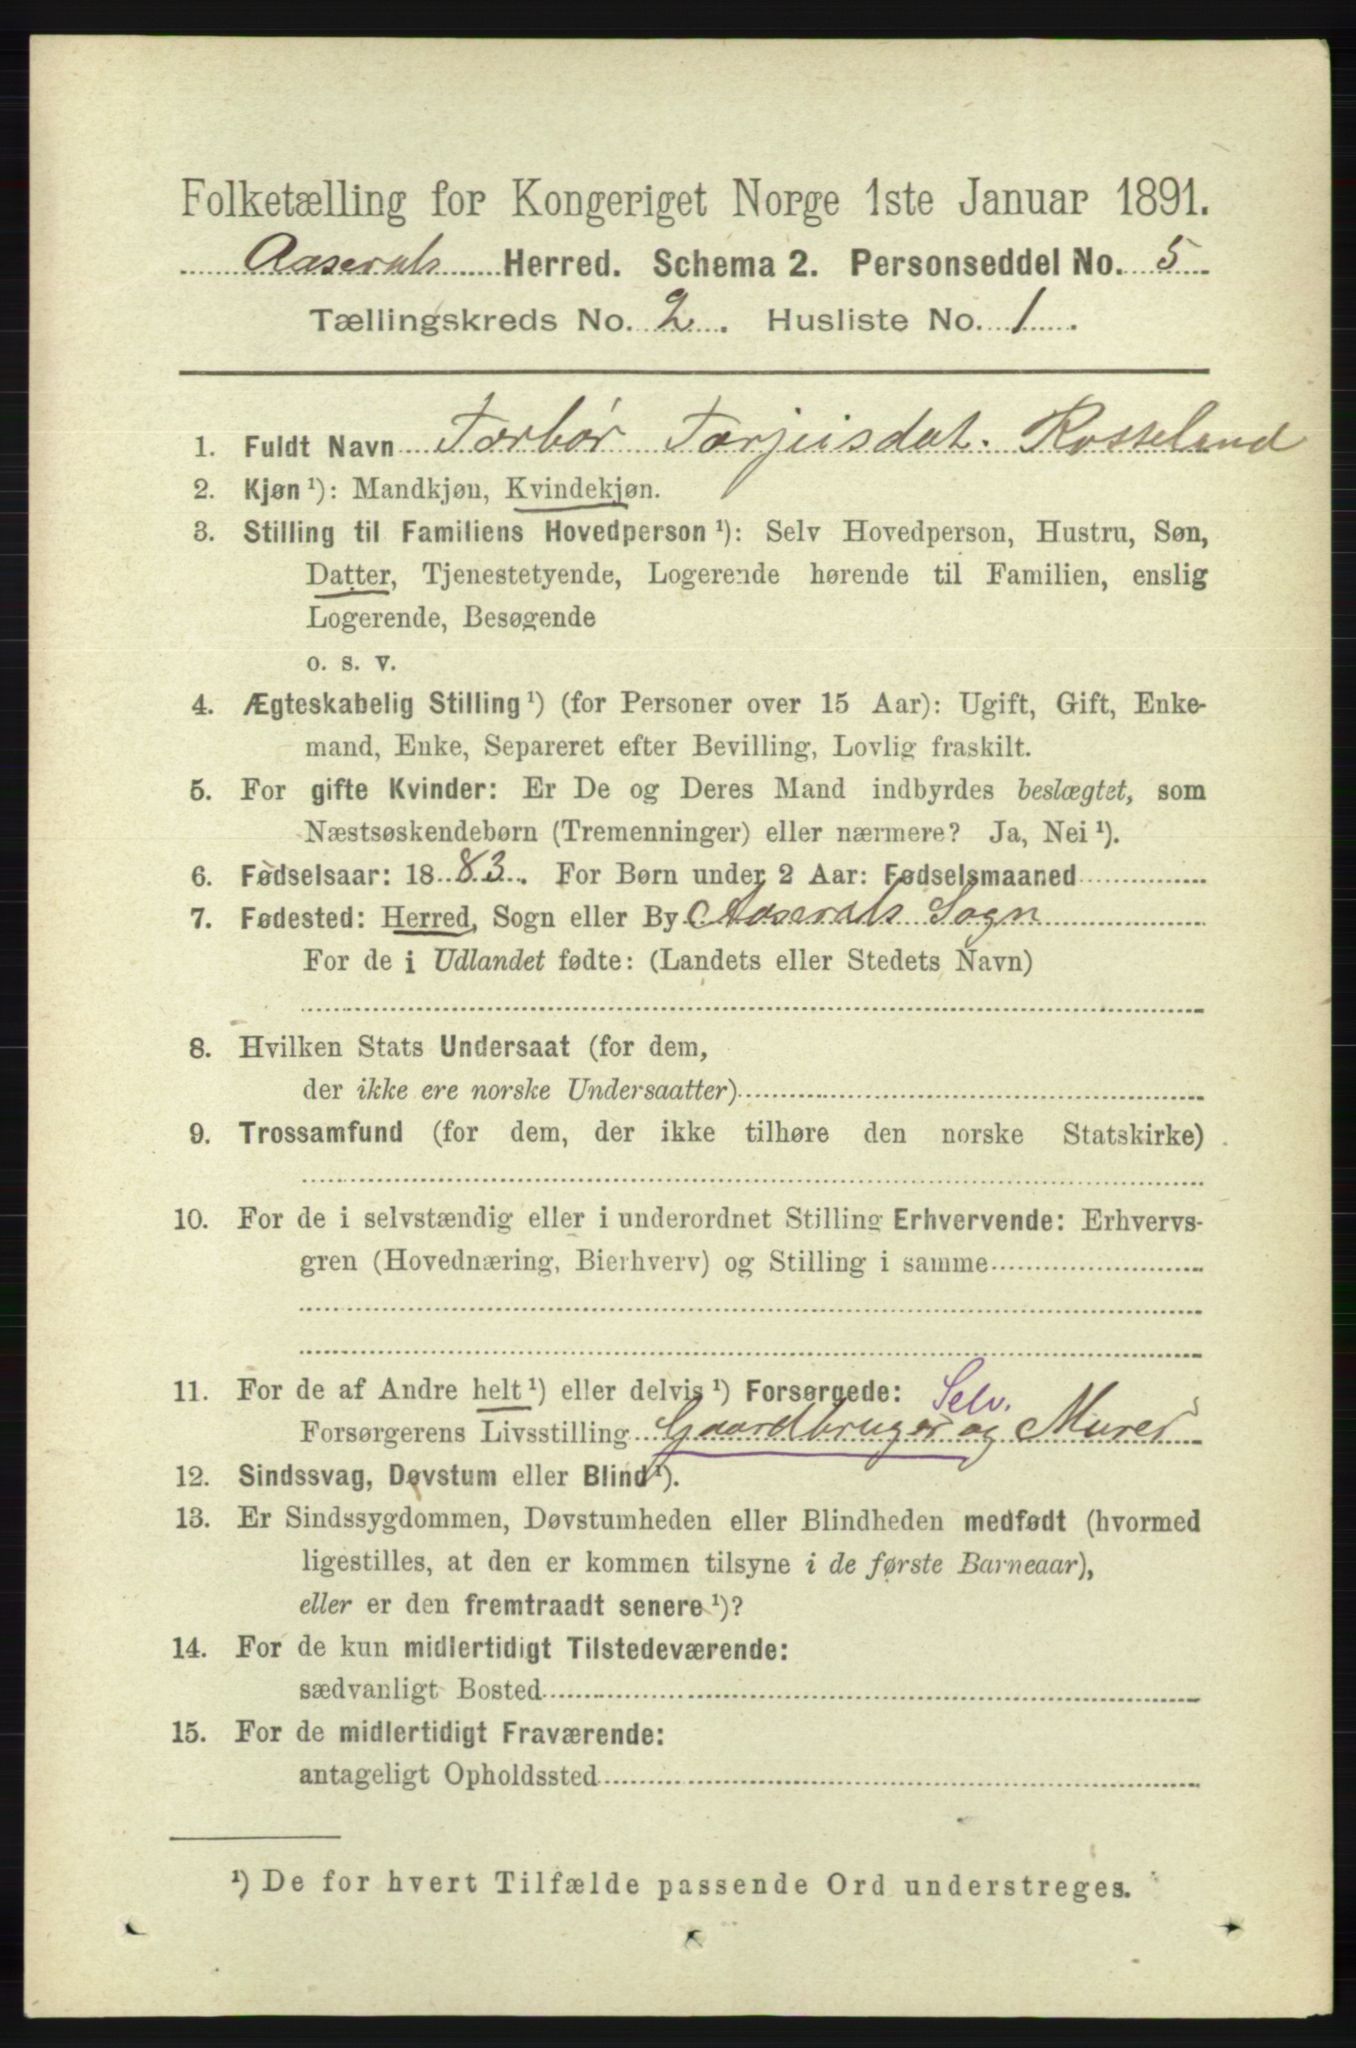 Folketælling for Kongeriget Norge 1ste Januar 1891.
Aaserals Herred. Schema 2. Personseddel No. 5
Tællingskreds No. 2. Husliste No. 1.
1. Fuldt Navn Torbør Torjeisdat. Rosseland
2. Kjøn ¹): Mandkjøn, Kvindekjøn.
3. Stilling til Familiens Hovedperson ¹): Selv Hovedperson, Hustru, Søn,
Datter, Tjenestetyende, Logerende hørende til Familien, enslig
Logerende, Besøgende
o. s. v.
4. Ægteskabelig Stilling ¹) (for Personer over 15 Aar): Ugift, Gift, Enke-
mand, Enke, Separeret efter Bevilling, Lovlig fraskilt.
5. For gifte Kvinder: Er De og Deres Mand indbyrdes beslægtet, som
Næstsøskendebørn (Tremenninger) eller nærmere? Ja, Nei ¹).
6. Fødselsaar: 1883. For Børn under 2 Aar: Fødselsmaaned
7. Fødested: Herred, Sogn eller By Aaserals Sogn
For de i Udlandet fødte: (Landets eller Stedets Navn)
8. Hvilken Stats Undersaat (for dem,
der ikke ere norske Undersaatter)
9. Trossamfund (for dem, der ikke tilhøre den norske Statskirke)
10. For de i selvstændig eller i underordnet Stilling Erhvervende: Erhvervs-
gren (Hovednæring, Bierhverv) og Stilling i samme
11. For de af Andre helt ¹) eller delvis ¹) Forsørgede: Selv.
Forsørgerens Livsstilling Gaardbruger og Murer
12. Sindssvag, Døvstum eller Blind ¹).
13. Er Sindssygdommen, Døvstumheden eller Blindheden medfødt (hvormed
ligestilles, at den er kommen tilsyne i de første Barneaar),
eller er den fremtraadt senere ¹)?
14. For de kun midlertidigt Tilstedeværende:
sædvanligt Bosted
15. For de midlertidigt Fraværende:
antageligt Opholdssted
¹) De for hvert Tilfælde passende Ord understreges.